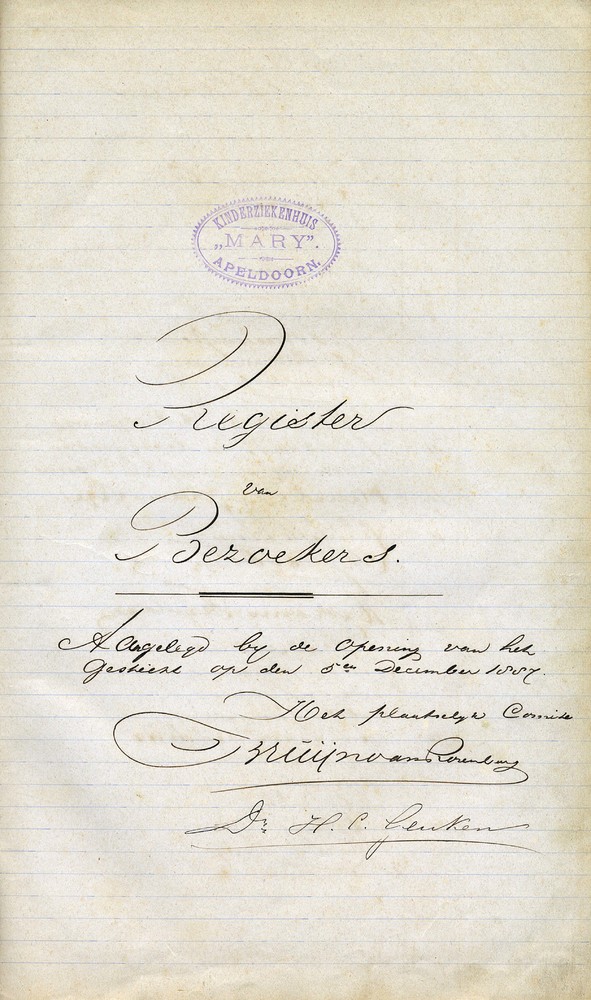 KINDERZIEKENHUIS
„MARY”.
APELDOORN.
Register
van
Bezoekers.
Aangelegd by de opening van het
Gesticht op den 5en December 1887.
Het plaatselyk Comite
van Rosenburg
Dr. H. C.